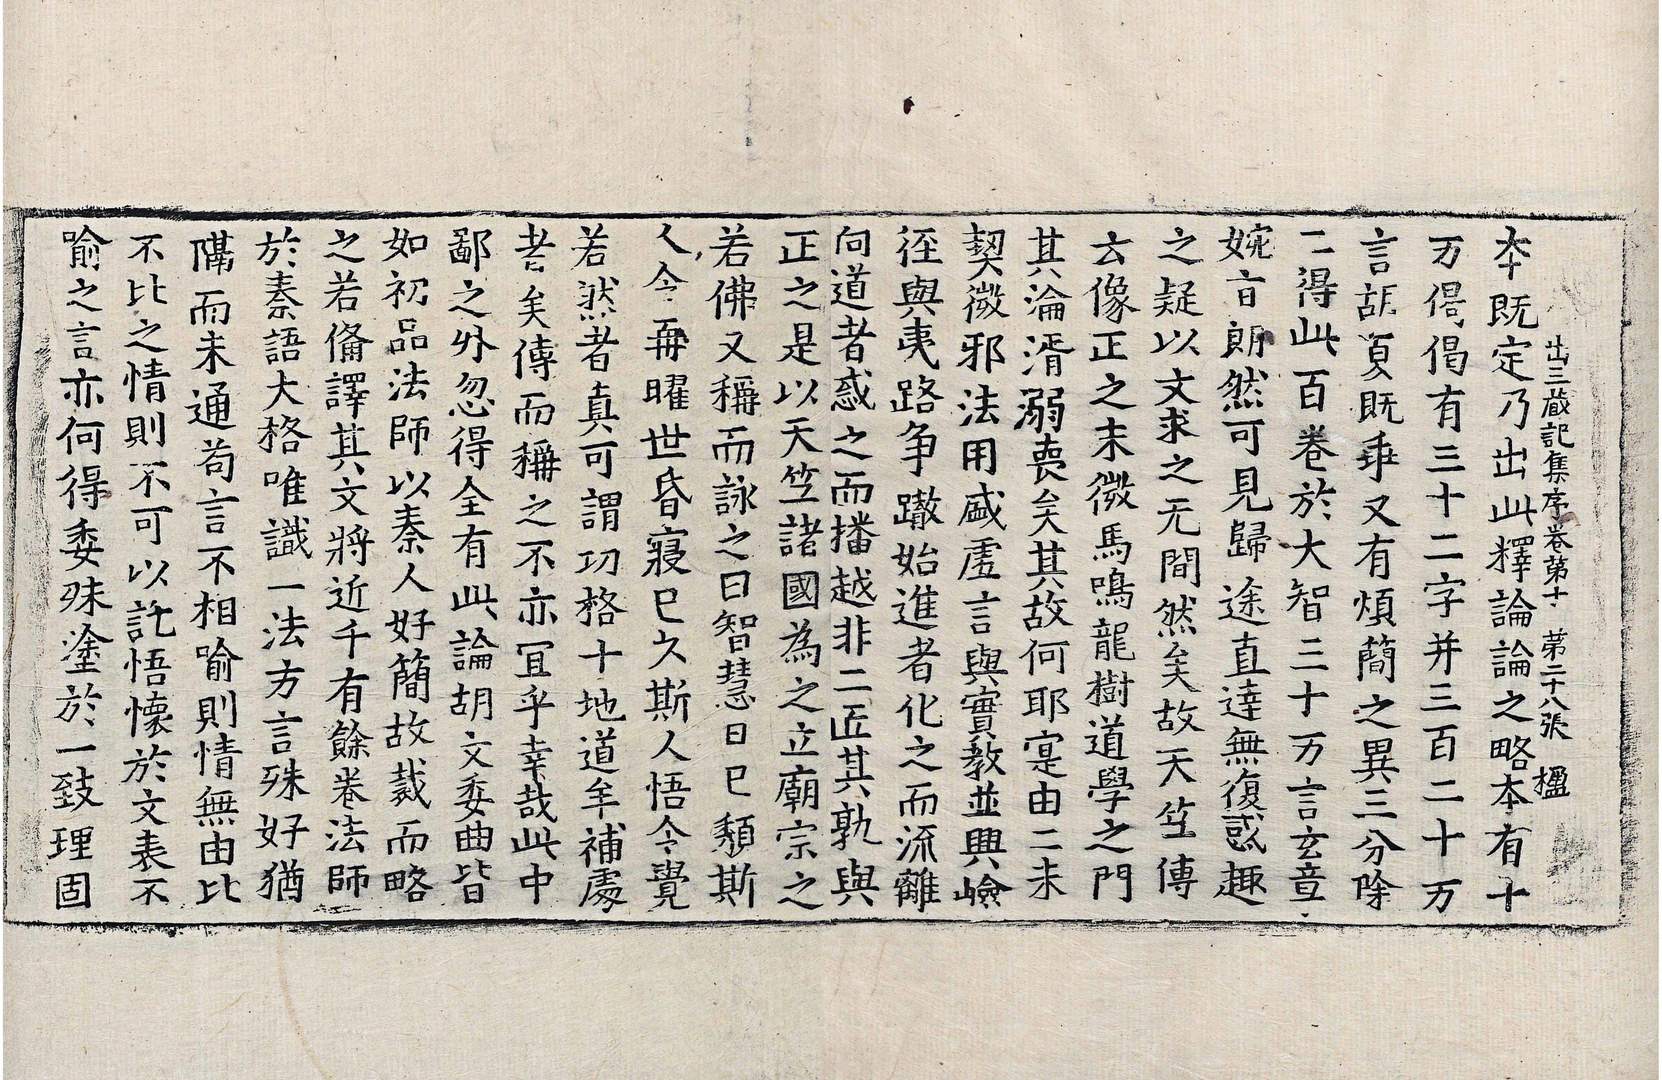 出三蔵記集序卷第十 第二十八張 楹
本既定乃出此釋論論之略本有十
万偈偈有三十二字并三百二十万
言胡夏既乖又有煩簡之異三分除
二得此百卷於大智三十万言玄章
婉旨朗然可見歸途直達無復惑趣
之疑以文求之无間然矣故天竺傳
云像正之末微馬鳴龍樹道學之門
其淪湑溺喪矣其故何耶寔由二未
契微邪法用盛虛言與實教並興嶮
徑與夷路争轍始進者化之而流離
向道者惑之而播越非二匠其孰與
正之是以天竺諸國為之立廟宗之
若佛又稱而詠之曰智慧日已頹斯
人令再曜世昏寢已久斯人悟令覺
若然者真可謂功格十地道牟補處
者矣傳而稱之不亦冝乎幸哉此中
鄙之外忽得全有此論胡文委曲皆
如初品法師以秦人好簡故裁而略
之若備譯其文將近千有餘卷法師
於秦語大格唯識一法方言殊好猶
隔而未通苟言不相喻則情無由比
不比之情則不可以託悟懷於文表不
喻之言亦何得委殊塗於一致理固